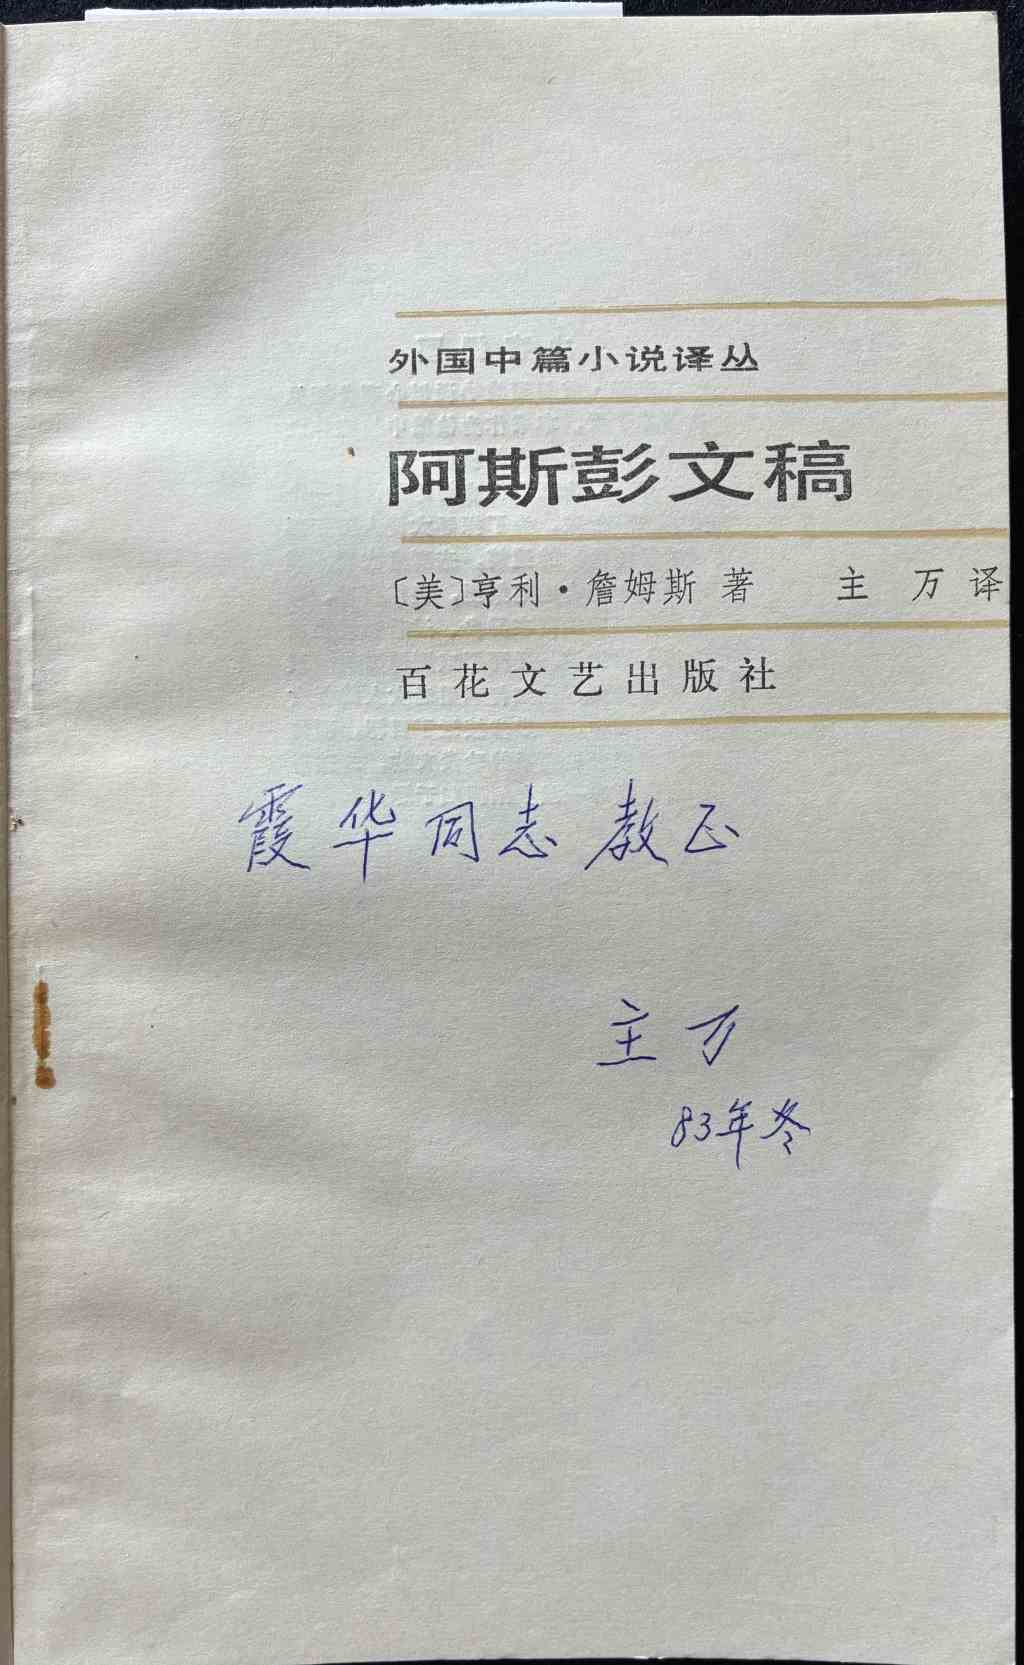 外国中篇小说译丛
阿斯彭文稿
〔美〕亨利·詹姆斯 著 主 万 译
百花文艺出版社
霞华同志教正
主万
83年冬